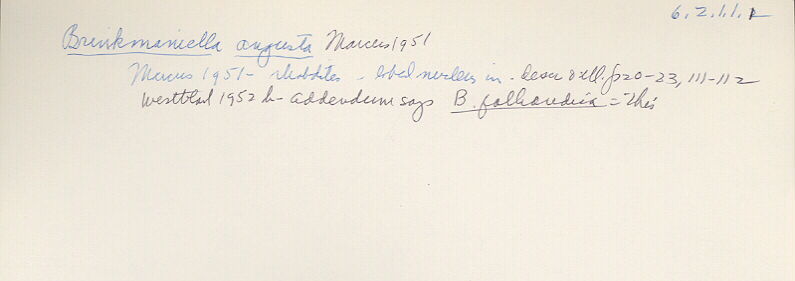 6.2.1.1.1
Brinkmaniella augusta Marcus 1951
Marcus 1951 - rhabdites - lobed nucleus in - descr & ill. p20-23, 111-112
Westblad 1952 b - addendum says B. = this